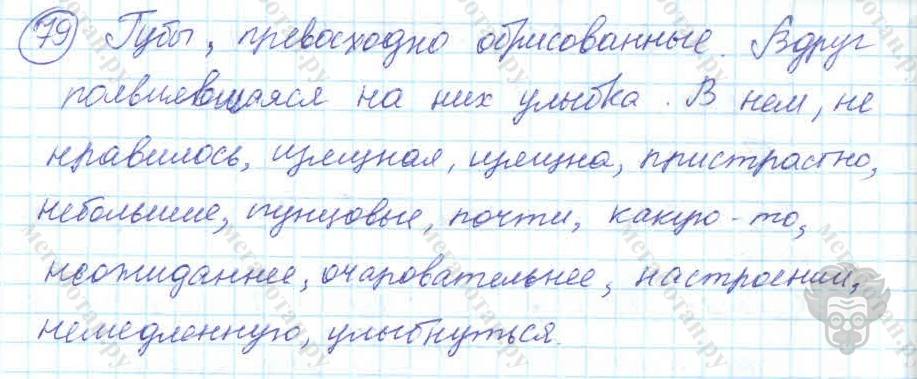 79 Губы, превосходно обрисованные. Вдруг
появившаяся на них улыбка. В нем, не
нравилось, изящная, изящна, пристрастно,
небольшие, пунцовые, почти, какую-то,
неожиданнее, очаровательнее, настроении,
немедленную, улыбнуться.